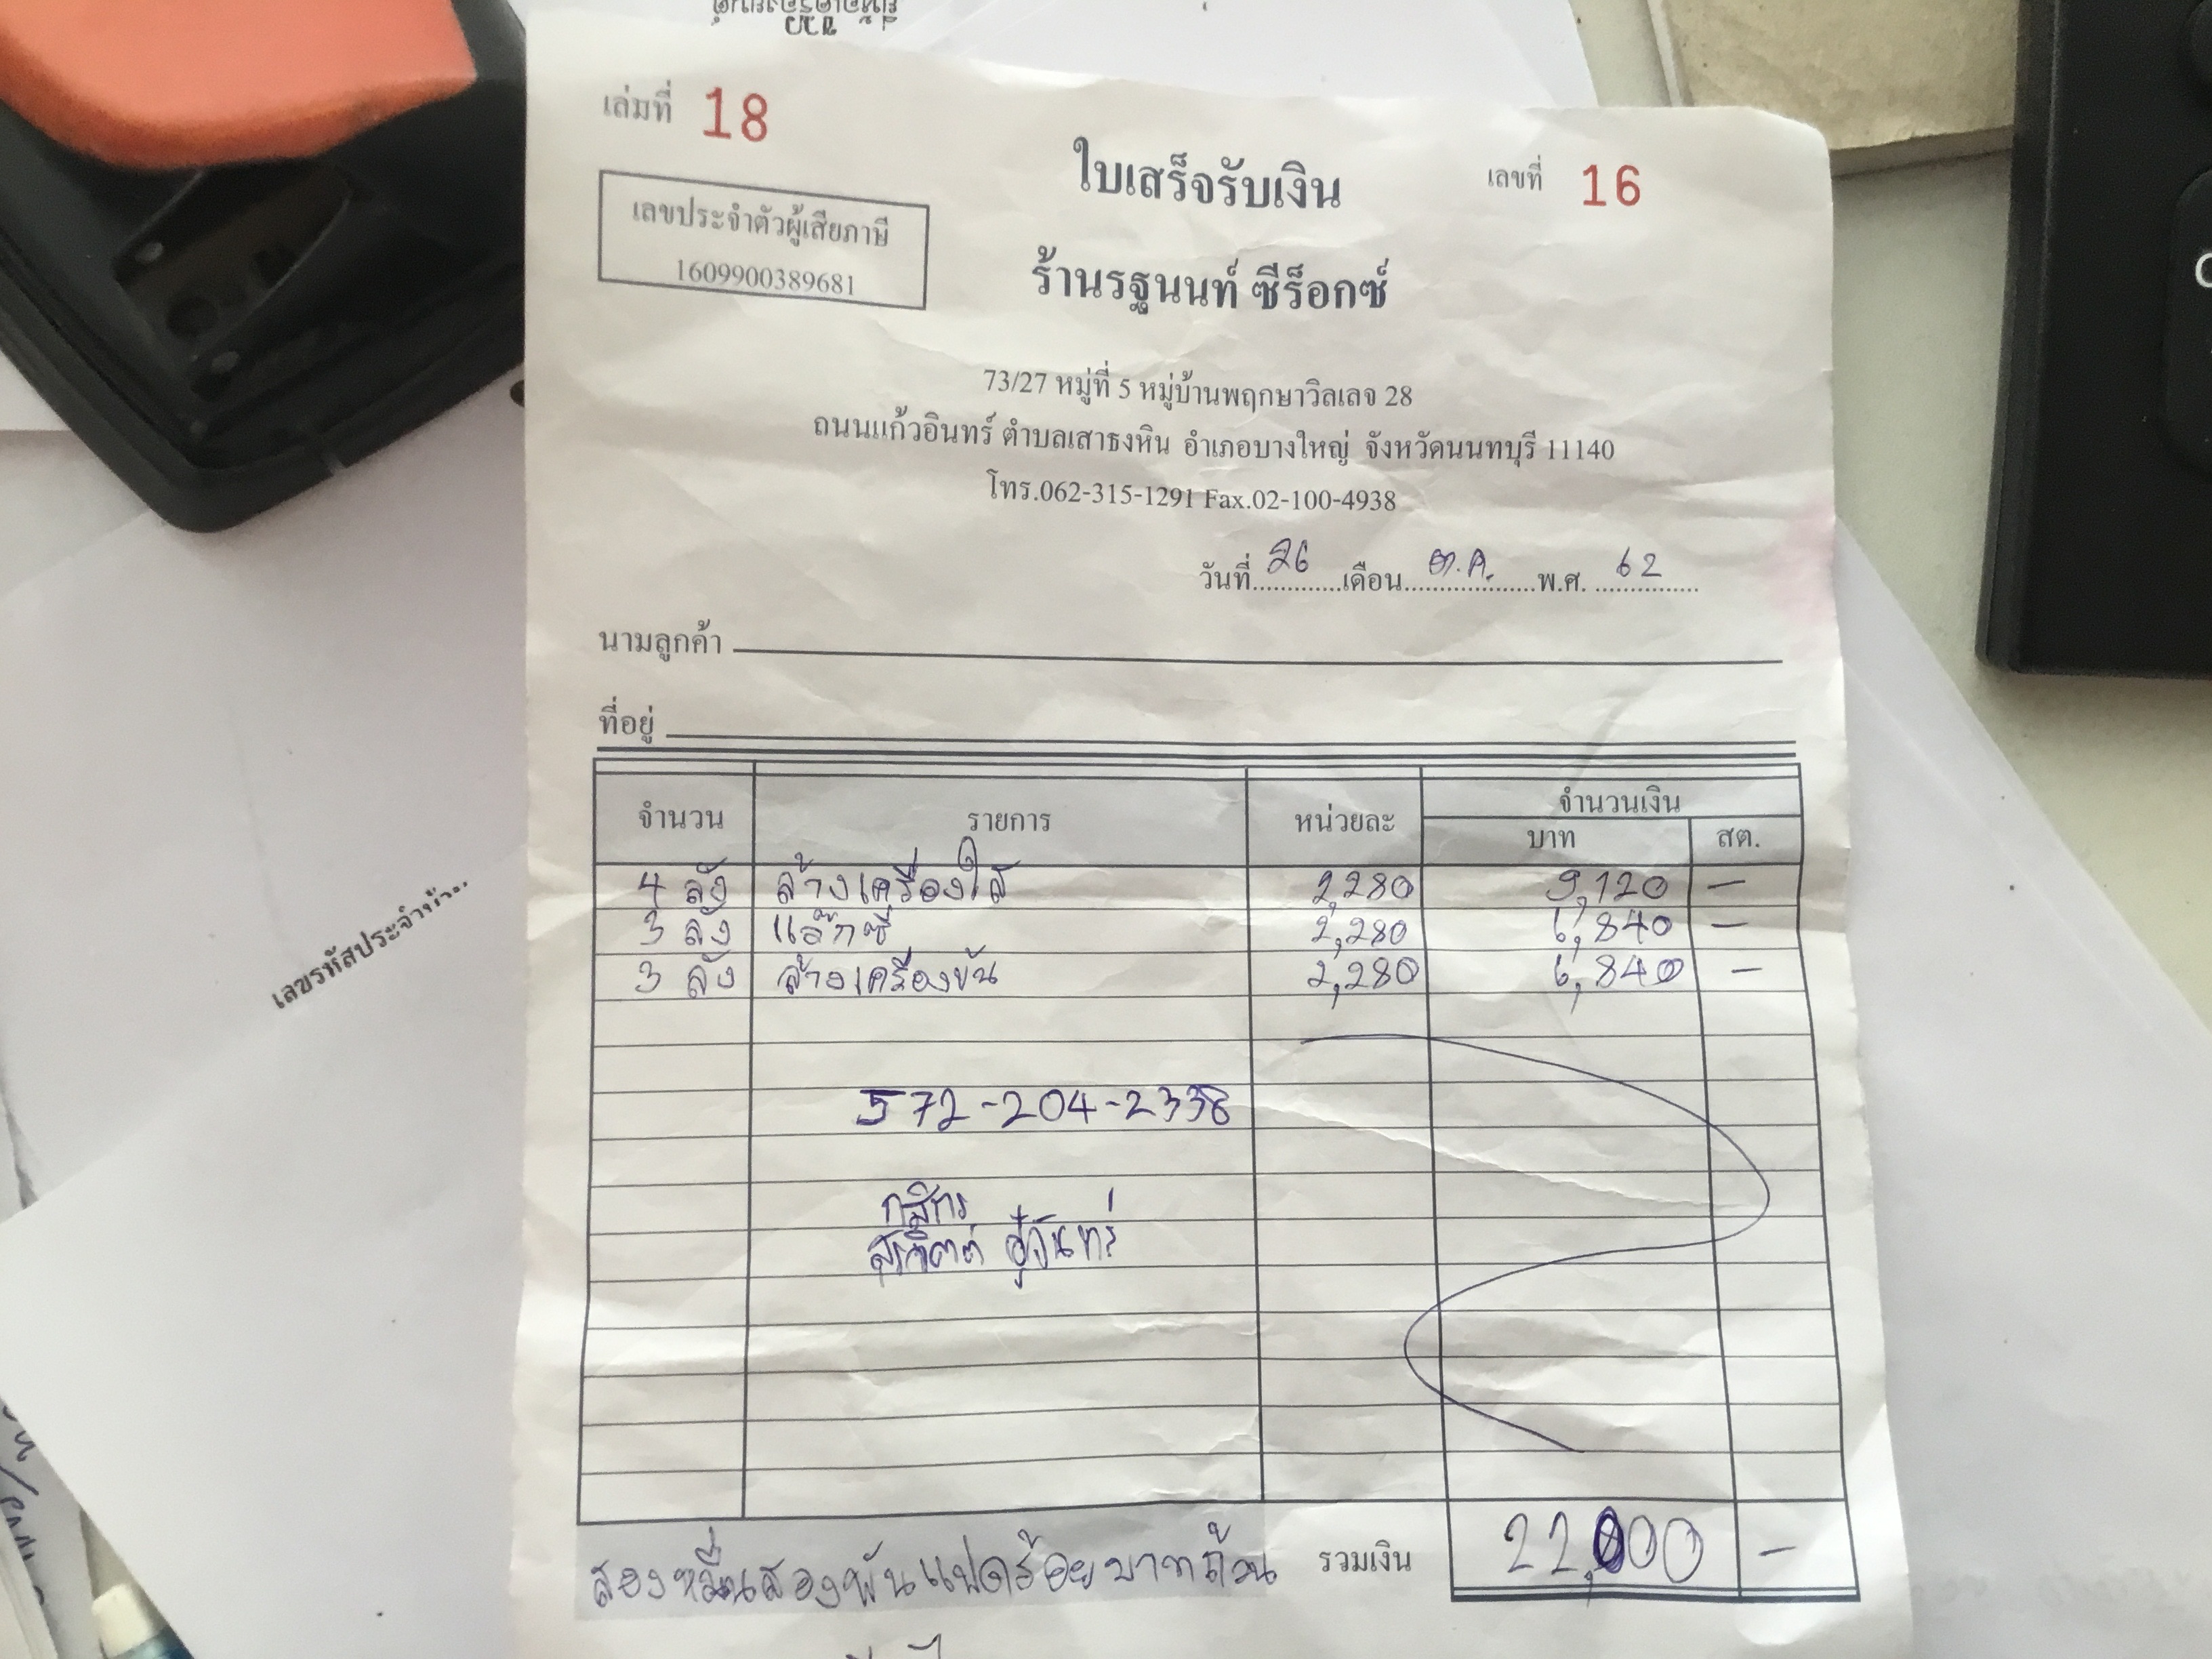 เล่มที่ 18
ใบเสร็จรับเงิน
เลขที่ 16
เลขประจำตัวผู้เสียภาษี
1609900389681
ร้านรฐนนท์ ซีร็อกซ์
73/27 หมู่ที่ 5 หมู่บ้านพฤกษาวิลเลจ 28
ถนนแก้วอินทร์ ตำบลเสาธงหิน อำเภอบางใหญ่ จังหวัดนนทบุรี 11140
โทร.062-315-1291 Fax.02-100-4938
วันที่ 26 เดือน ต.ค. พ.ศ. 62
นามลูกค้า
ที่อยู่
จำนวน รายการ หน่วยละ จำนวนเงิน
บาท สต.
4 ลัง ล้างเครื่องใส 2,280 9,120 –
3 ลัง แล๊กซี่ 2,280 6,840 –
3 ลัง ล้างเครื่องข้น 2,280 6,840 –
572-204-2338
กสิกร
สองหมื่นสองพันแปดร้อยบาทถ้วน รวมเงิน 22,800 –
เลขรหัสประจำบ้าน